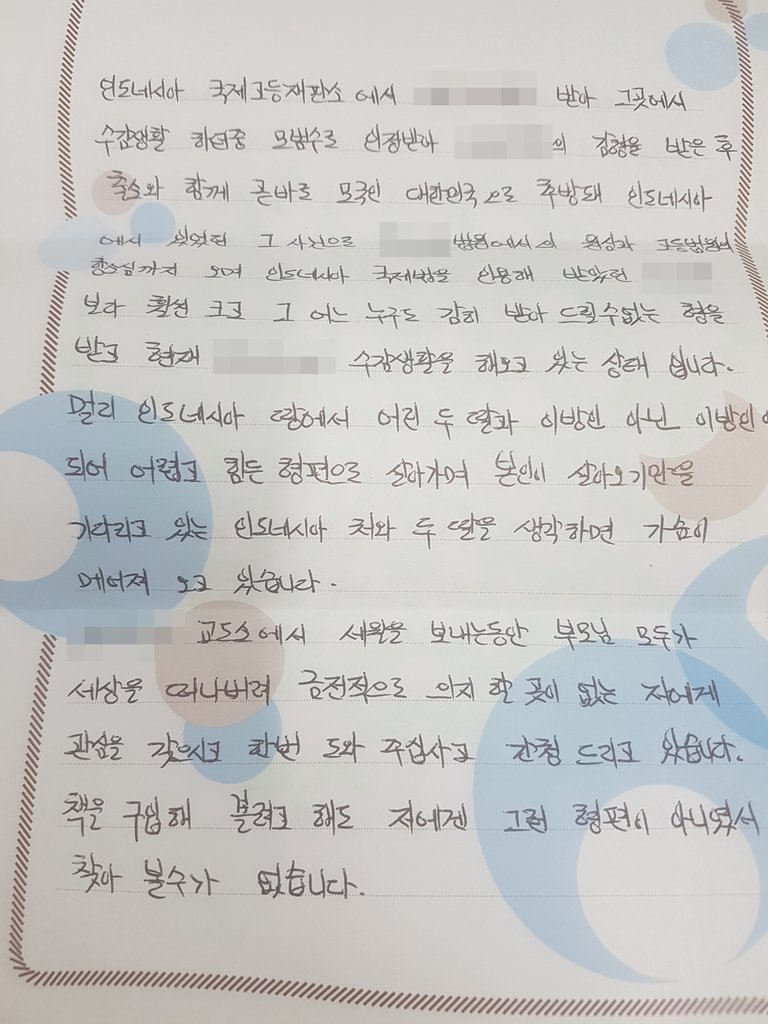 인도네시아 국제고등재판소에서 받아 그곳에서
수감생활 하던중 모범수로 인정받아 의 감형을 받은 후
출소와 함께 곧바로 모국인 대한민국으로 추방돼 인도네시아
에서 있었던 그 사건으로 법원에서의 원심과 고등법원의
항소심까지 오며 인도네시아 국제법을 인용해 받았던
보다 훨씬 크고 그 어느 누구도 감히 받아 드릴수없는 형을
받고 현재 수감생활을 해오고 있는 상태 입니다.
멀리 인도네시아 땅에서 어린 두 딸과 이방인 아닌 이방인이
되어 어렵고 힘든 형편으로 살아가며 본인이 살아오기만을
기다리고 있는 인도네시아 처와 두 딸을 생각하면 가슴이
메어져 오고 있습니다.
교도소에서 세월을 보내는동안 부모님 모두가
세상을 떠나버려 금전적으로 의지 할 곳이 없는 저에게
관심을 갖으시고 한번 도와 주십사고 간청 드리고 있습니다.
책을 구입해 볼려고 해도 저에겐 그런 형편이 아니였서
찾아 볼수가 없습니다.